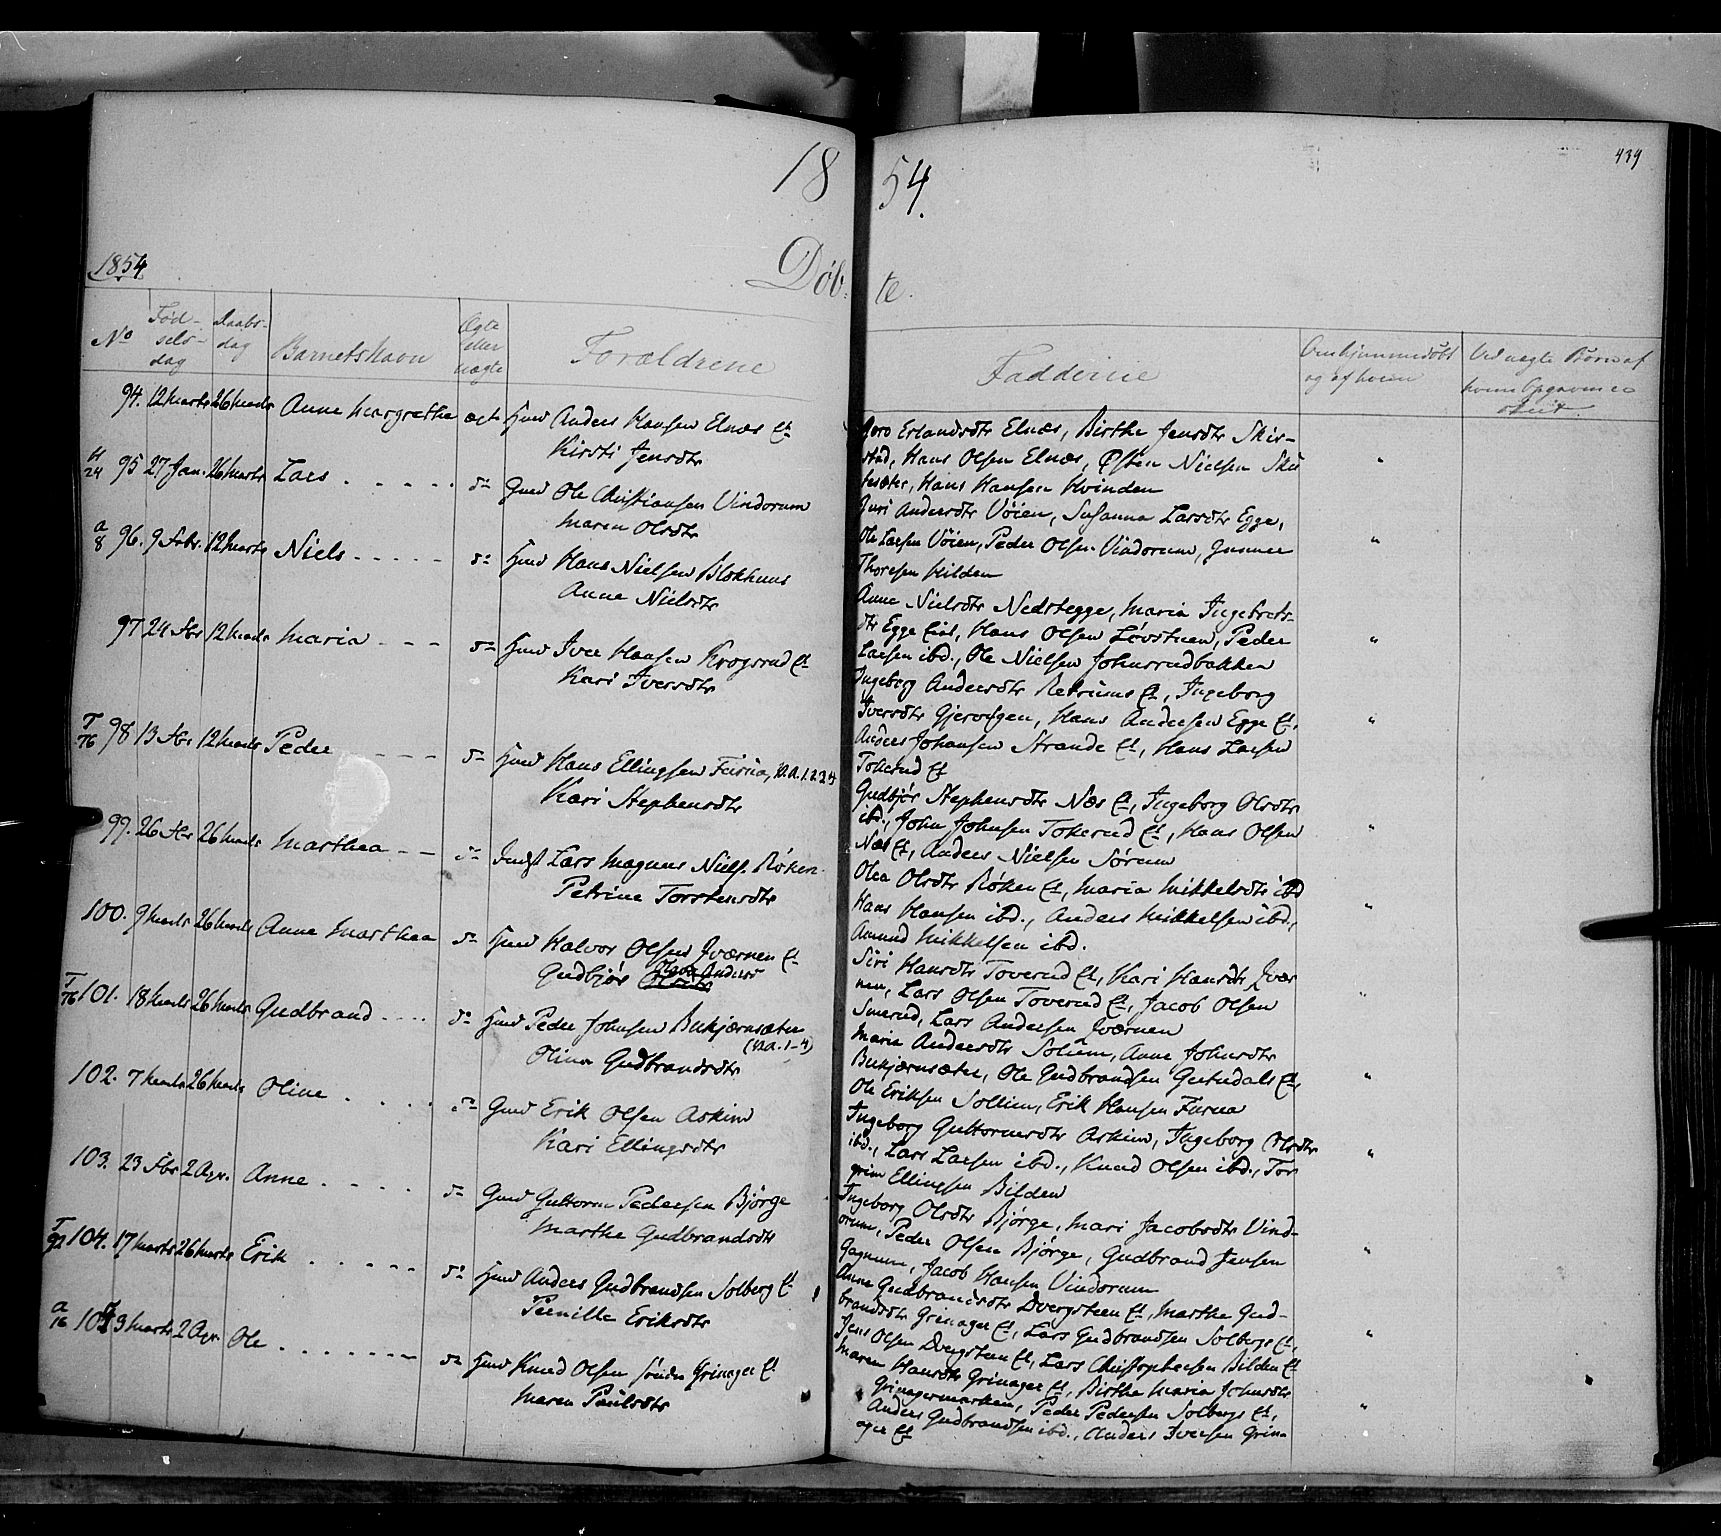 18 54.
439
1854
Døb- te.
No
Fød-
sels-
dag
Daabs-
dag
Barnets Navn
Ægte
eller
uægte
Forældrene
Fadderne
Om hjemmedøbt
og af hvem
Ved uægte Børn af
94. 12 Marts 26 Marts Anne Margrethe ægt Gmd Anders Hansen Elnæs Et
Kirsti Jensdtr
24 95 27 Jan. 26 Marts Lars . . . . . . do Gmd Ole Christiansen Vindorum
Maren Olsdtr
a
8 96. 9 Febr. 12 Marts Niels - - - - - do Hmd Hans Nielsen Blokhuus
Anne Nielsdtr
97 24 Fbr 12 Marts Maria - - - do Hmd Iver Hansen Krogsrud Et
Kari Iversdtr
T
76 98 13 Fbr 12 Marts Peder - - - do Hmd Hans Ellingsen Furua, V.A. 1.2.3.4
Kari Stephensdtr
99. 26 Fbr 26 Marts Marthea - - do Indst Lars Magnus Niels. Røken
Petrine Torstensdtr
100. 9 Marts 26 Marts Anne Marthea do Hmd Halvor Olsen Iværnen Et
Gudbjør Olsdtr
T
76 101. 18 Marts 26 Marts Gudbrand . . . . do Hmd Peder Johnsen Bukjernsæter
(V.A. 1-4)
Oline Gudbrandsdtr
102. 7 Marts 26 Marts Oline . . . . . do Gmd Erik Olsen Askim
Kari Ellingsdtr
103. 23 Fbr 2 Apr. Anne . . . . . do Gmd Guttorm Pedersen Bjørge
Marthe Gudbrandsdtr
T
104. 17 Marts 26 Marts Erik . . . . . do Hmd Anders Gudbrandsen Solberg Et
Pernille Eriksdtr
a
16 105 3 Marts 2 Apr. Ole . . . . . . . do Hmd Knud Olsen søndre Grinager Et
Maren Paulsdtr
Goro Erlandsdtr Elnæs, Birthe Jensdtr Skir-
stad, Hans Olsen Elnæs, Østen Nielsen
Hans Hansen Hvinden
Guri Andersdtr Vøien, Susanna Larsdtr Egge,
Ole Larsen Vøien, Peder Olsen Vindorum, Gunner
Thoresen Kilden
Anne Nielsdtr Nedstegge, Maria Ingebrets-
dtr Egge Eiet, Hans Olsen Løvstuen, Peder
Larsen ibd., Ole Nielsen Johnsrudbakken
Ingeborg Andersdtr Retrums Et, Ingeborg
Iversdtr Gjervsgen, Hans Andersen Egge Et,
Anders Johansen Strande Et, Hans Larsen
Tokerud Et
Gudbjør Stephensdtr Næs Et, Ingeborg Olsdtr
ibd., John Johnsen Tokerud Et, Hans Olsen
Næs Et, Anders Nielsen Sørum
Olea Olsdtr Røken Et, Maria Mikkelsdtr ibd
Hans Hansen ibd., Anders Mikkelsen ibd.,
Amund Mikkelsen ibd.
Siri Hansdtr Toverud Et, Kari Hansdtr Ivær
nen, Lars Olsen Toverud Et, Jacob Olsen
Smerud, Lars Andersen Iværnen
Marie Andersdtr Solum, Anne Johnsdtr
Bukjernsæter, Ole Gudbrandsen Gutudals Et,
Ole Eriksen Sollien, Erik Hansen Furua
Ingeborg Guttormsdtr Askim, Ingeborg Olsdtr
ibd., Lars Larsen ibd., Knud Olsen ibd., Tor
grim Ellingsen Bilden
Ingeborg Olsdtr Bjørge, Mari Jacobsdtr Vind-
orum, Peder Olsen Bjørge, Gudbrand Jensen
Gagnum, Jacob Hansen Vindorum
Anne Gudbrandsdtr Dvergsteen Et, Marthe Gud-
brandsdtr Grinager Et, Lars Gudbrandsen Solbergs Et,
Jens Olsen Dvergsteen Et, Lars Christophersen Bilden Et
Maren Hansdtr Grinager Et, Birthe Maria Johnsdtr
Grinagermarken, Peder Pedersen Solbergs Et,
Anders Gudbrandsen ibd., Anders Iversen Grin-
ager Et